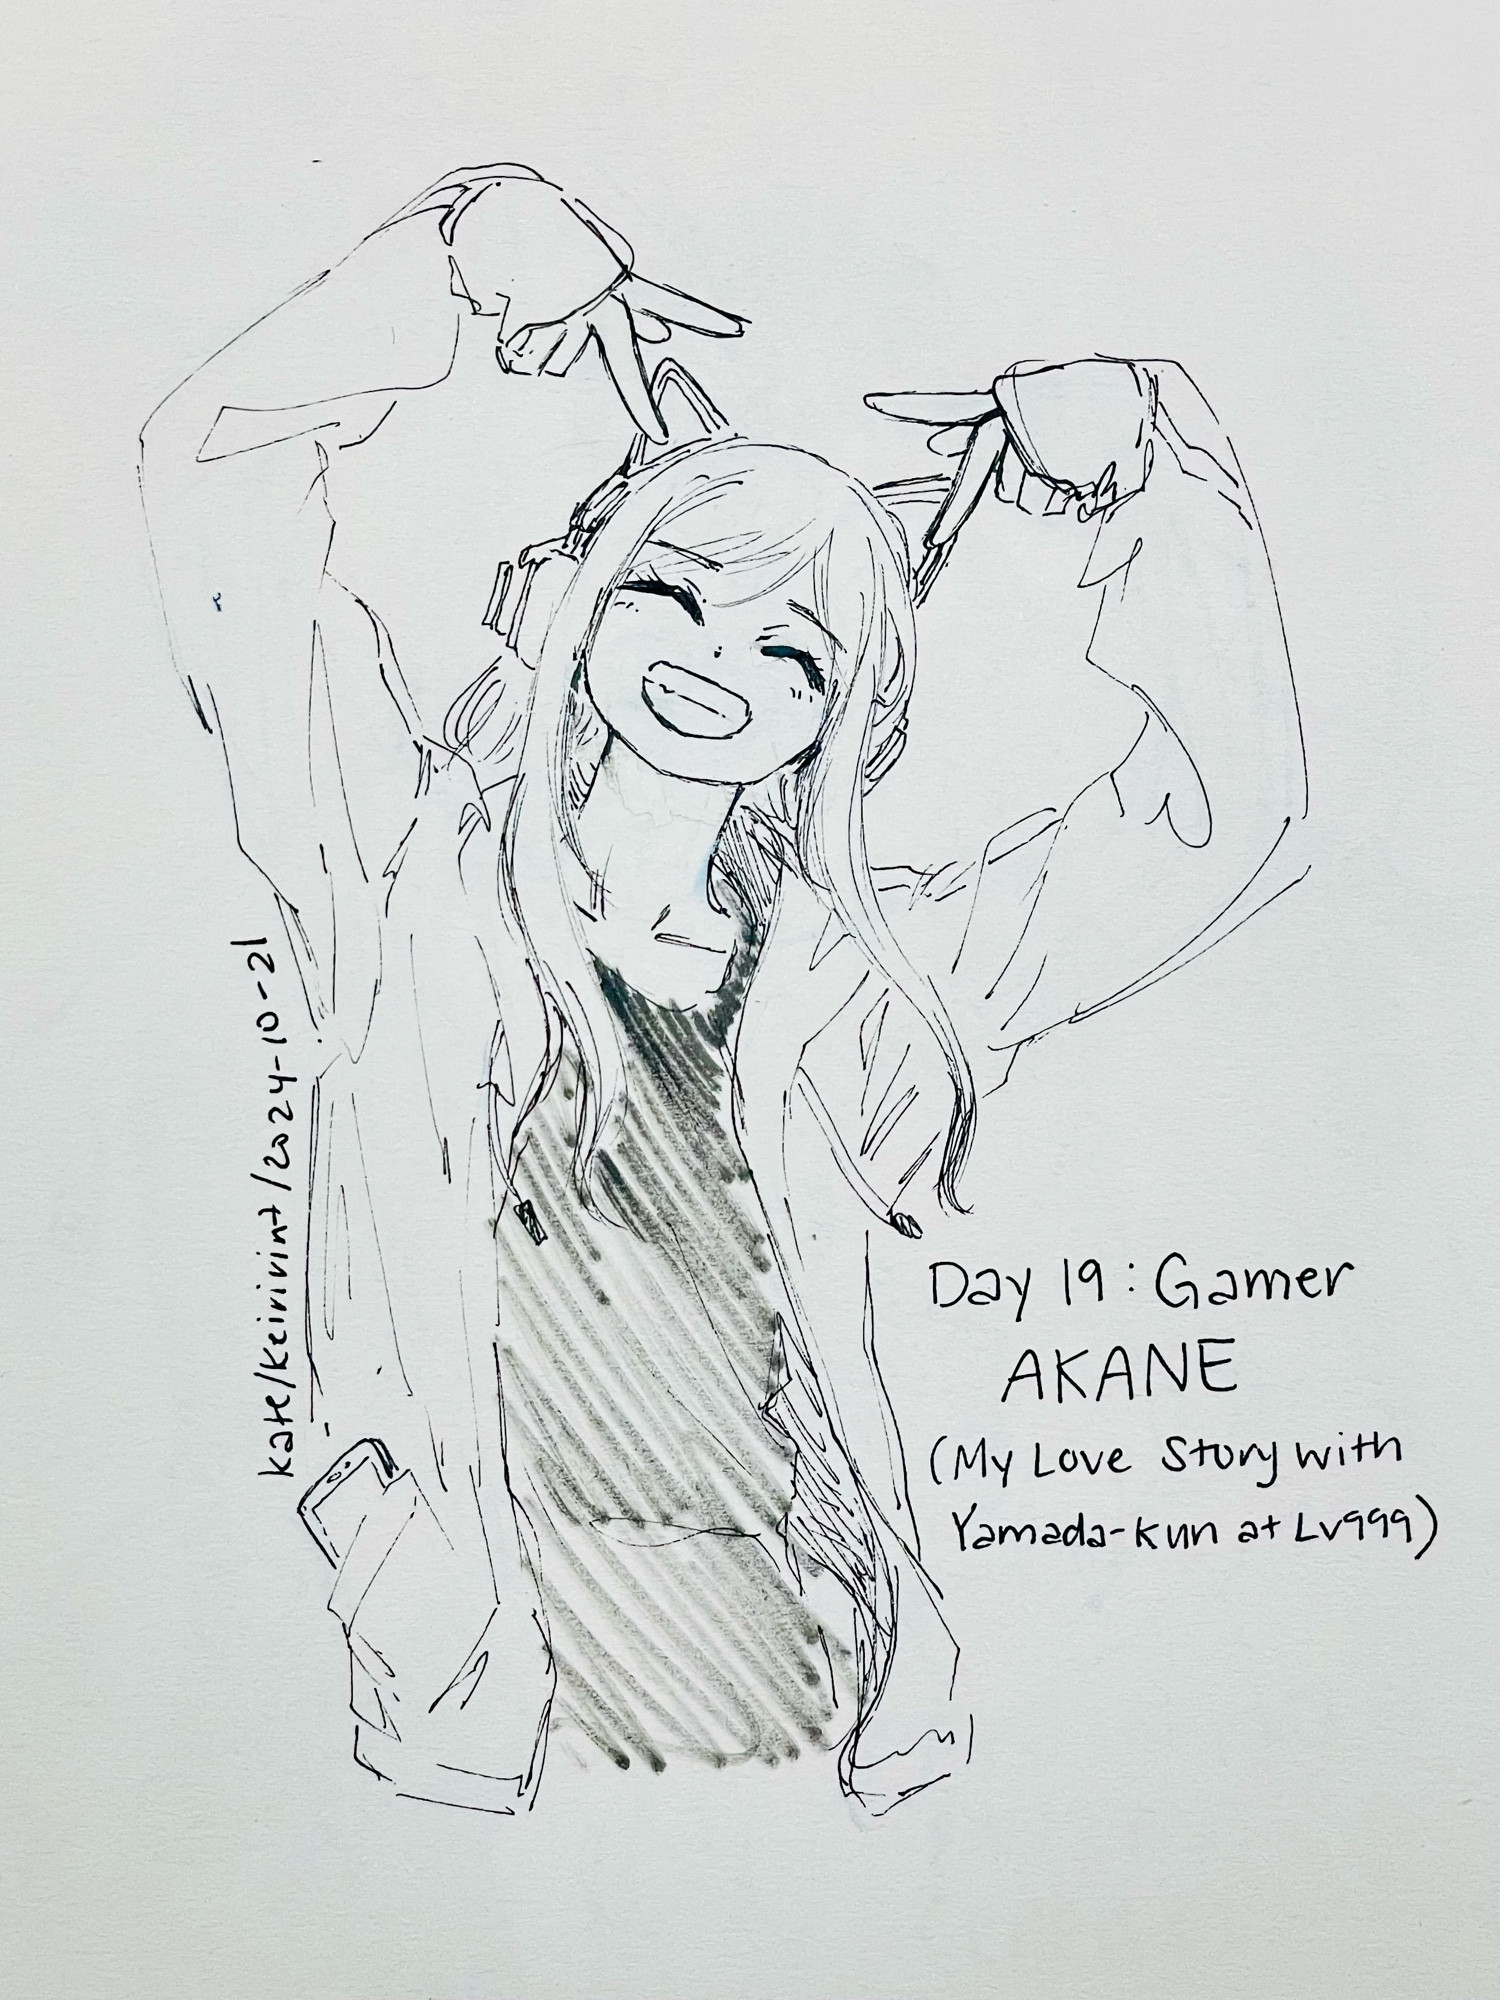 Kate/Keirivint/2024-10-21
Day 19: Gamer
AKANE
(My Love Story with
Yamada-kun at Lv999)